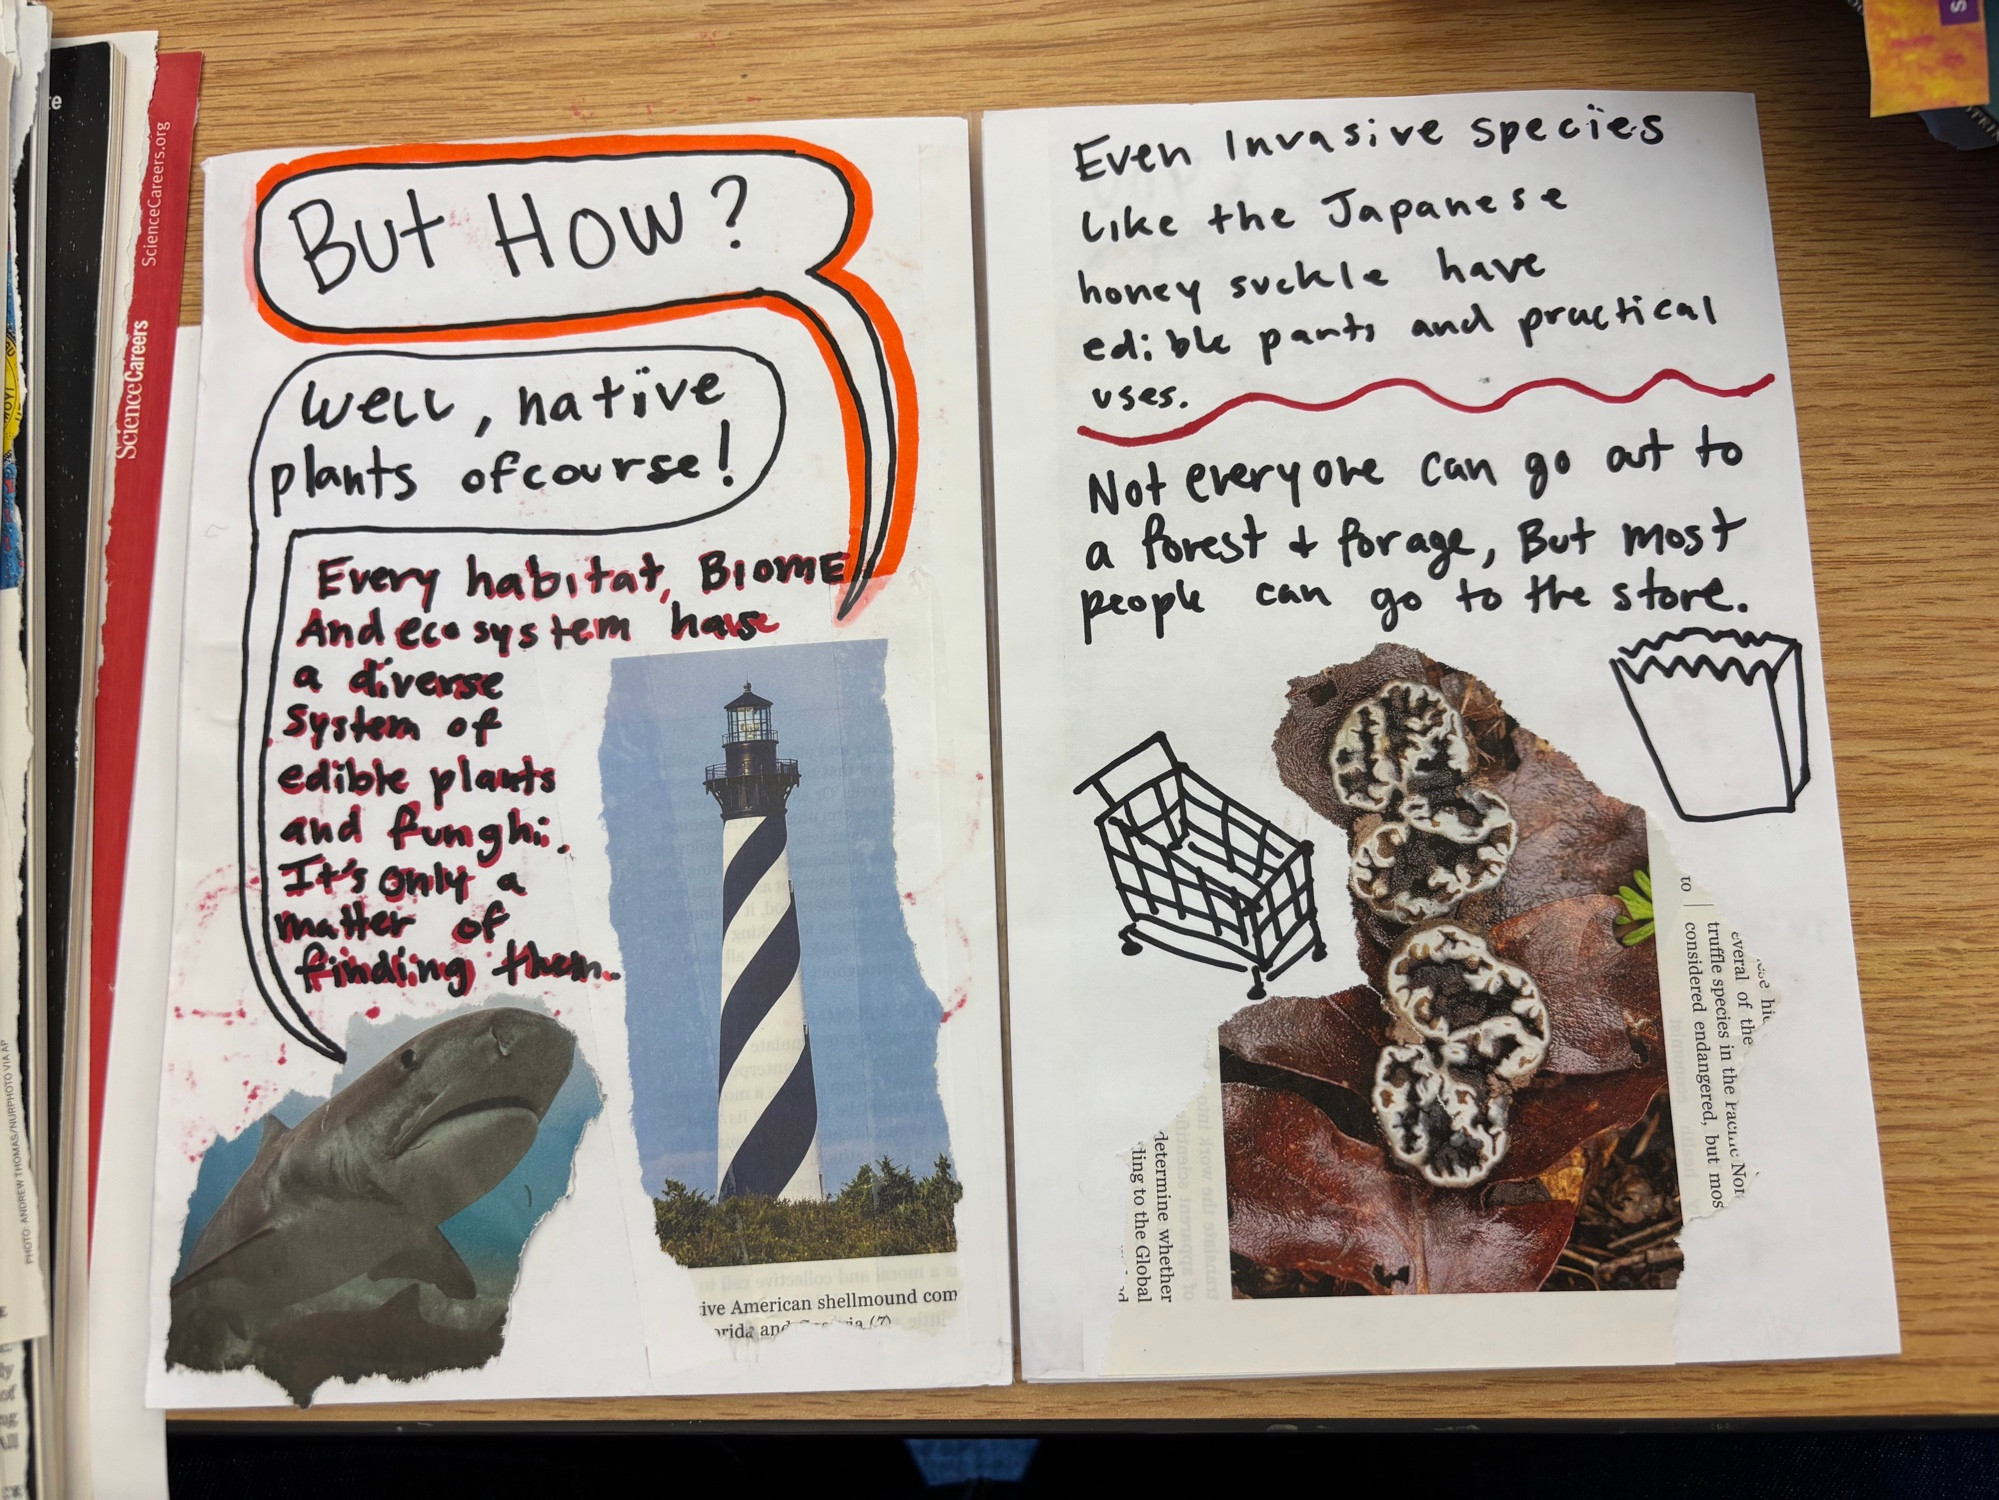 But How?
Well, native
plants ofcourse!
Every habitat, Biome
And ecosystem have
a diverse
system of
edible plants
and funghi.
It's only a
matter of
finding them.
ive American shellmound com
orida and
(7)
Even Invasive species
like the Japanese
honey suckle have
edible parts and practical
uses.
Not everyone can go out to
a forest + forage, But most
people can go to the store.
to
everal of the
truffle species in the Pacific Nor
considered endangered, but mos
determine whether
ling to the Global
ScienceCareers.org
ScienceCareers
PHOTO: ANDREW THOMAS/NURPHOTO VIA AP